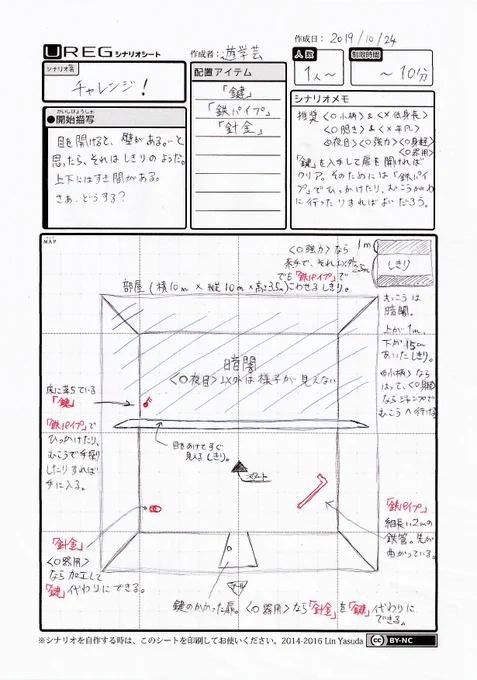 作成日：2019/10/24
UREG シナリオシート
作成者：遊学芸
人数
1人〜
制限時間
〜10分
シナリオ名
チャレンジ！
配置アイテム
「鍵」
「鉄パイプ」
「針金」
●開始描写
かいしびょうしゃ
目を開けると、壁がある。…と
思ったら、それはしきりのようだ。
上下にはすき間がある。
さあ、どうする？
シナリオメモ
推奨 〈○小柄〉&〈×低身長〉
〈○夜目〉〈○強力〉〈○身軽〉
〈○器用〉
「鍵」を入手して扉を開ければ
クリア。そのためには「鉄パイ
プ」でひっかけたり、むこうがわ
に行ったりすればよいだろう。
MAP
〈○強力〉なら
素手で、それ以外
でも「鉄パイプ」で
こわせるしきり。
1m
2.5m
しきり
部屋(横10m×縦10m×高さ3.5m)
むこうは
暗闇。
上が1m、
下が15cm
あいたしきり。
〈○小柄〉なら
はって、〈○身軽〉
ならジャンプで
むこうへ行ける
暗闇
〈○夜目〉以外は様子が見えない
床に落ちている
「鍵」
「鉄パイプ」で
ひっかけたり、
むこうで手探り
したりすれば
手に入る。
目をあけてすぐ
見えるしきり。
スタート
「鉄パイプ」
細長い2mの
鉄管。先が
曲がっている。
「針金」
〈○器用〉
なら加工して
「鍵」代わりにできる。
ゴール
鍵のかかった扉。〈○器用〉なら「針金」を「鍵」代わりに
できる。
※シナリオを自作する時は、このシートを印刷してお使いください。2014-2016 Lin Yasuda
cc BY-NC